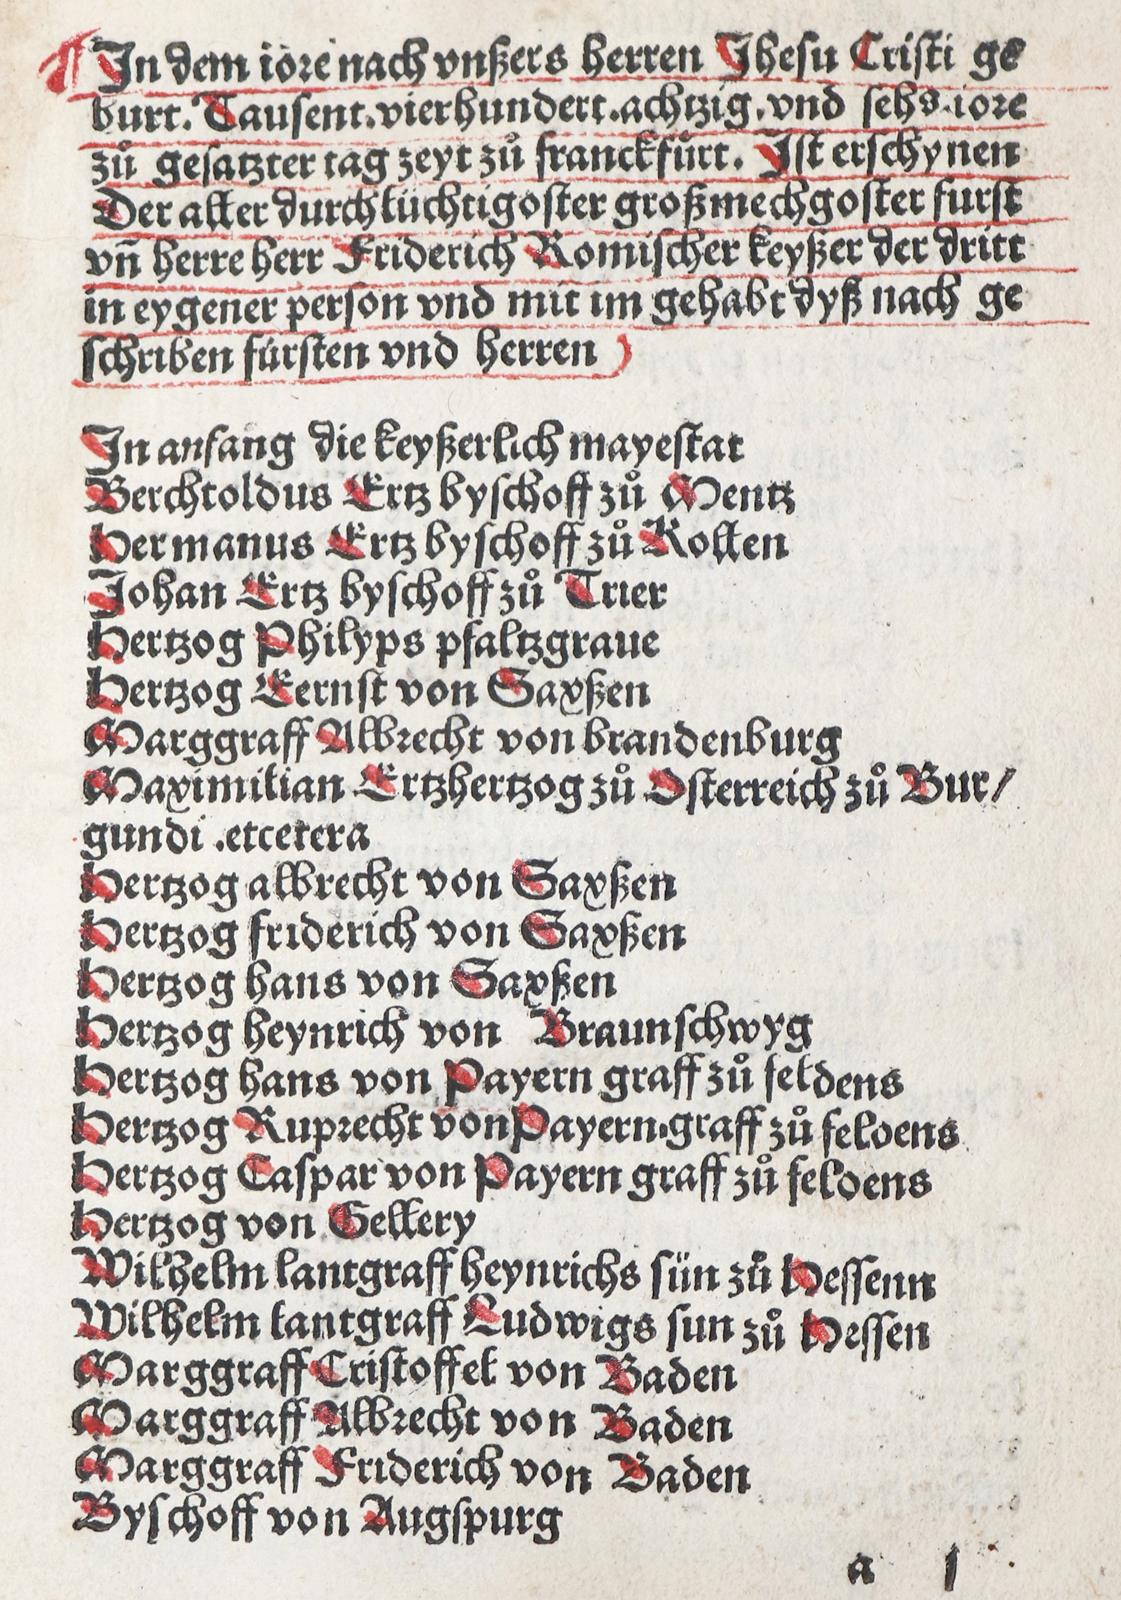 ¶ In dem iore nach vnßers herren Jhesu Cristi ge
burt. Tausent.vierhundert.achtzig.vnd sehs.iore
zů gesatzter tag zeyt zů franckfürt. Ist erschynen
Der aller durchlüchtigoster großmechgoster furst
vñ herre herr Friderich Romischer keyßer der dritt
in eygener person vnd mit im gehabt dyß nach ge
schriben fürsten vnd herren
In anfang die keyßerlich mayestat
Berchtoldus Ertz byschoff zů Mentz
Hermanus Ertz byschoff zů Kollen
Johan Ertz byschoff zů Trier
Hertzog Philyps pfaltzgraue
Hertzog Eernst von Saxßen
Marggraff Albrecht von brandenburg
Maximilian Ertzhertzog zů Osterreich zů Bur/
gundi .etcetera
Hertzog albrecht von Saxßen
Hertzog friderich von Saxßen
Hertzog hans von Saxßen
Hertzog heynrich von Braunschwyg
Hertzog hans von Payern graff zů feldens
Hertzog Ruprecht von Payern.graff zů feldens
Hertzog Caspar von Payern graff zů feldens
Hertzog von Gellery
Wilhelm lantgraff heynrichs sün zů Hessenn
Wilhelm lantgraff Ludwigs sun zů Hessen
Marggraff Cristoffel von Baden
Marggraff Albrecht von Baden
Marggraff Friderich von Baden
Byschoff von Augspurg
a j